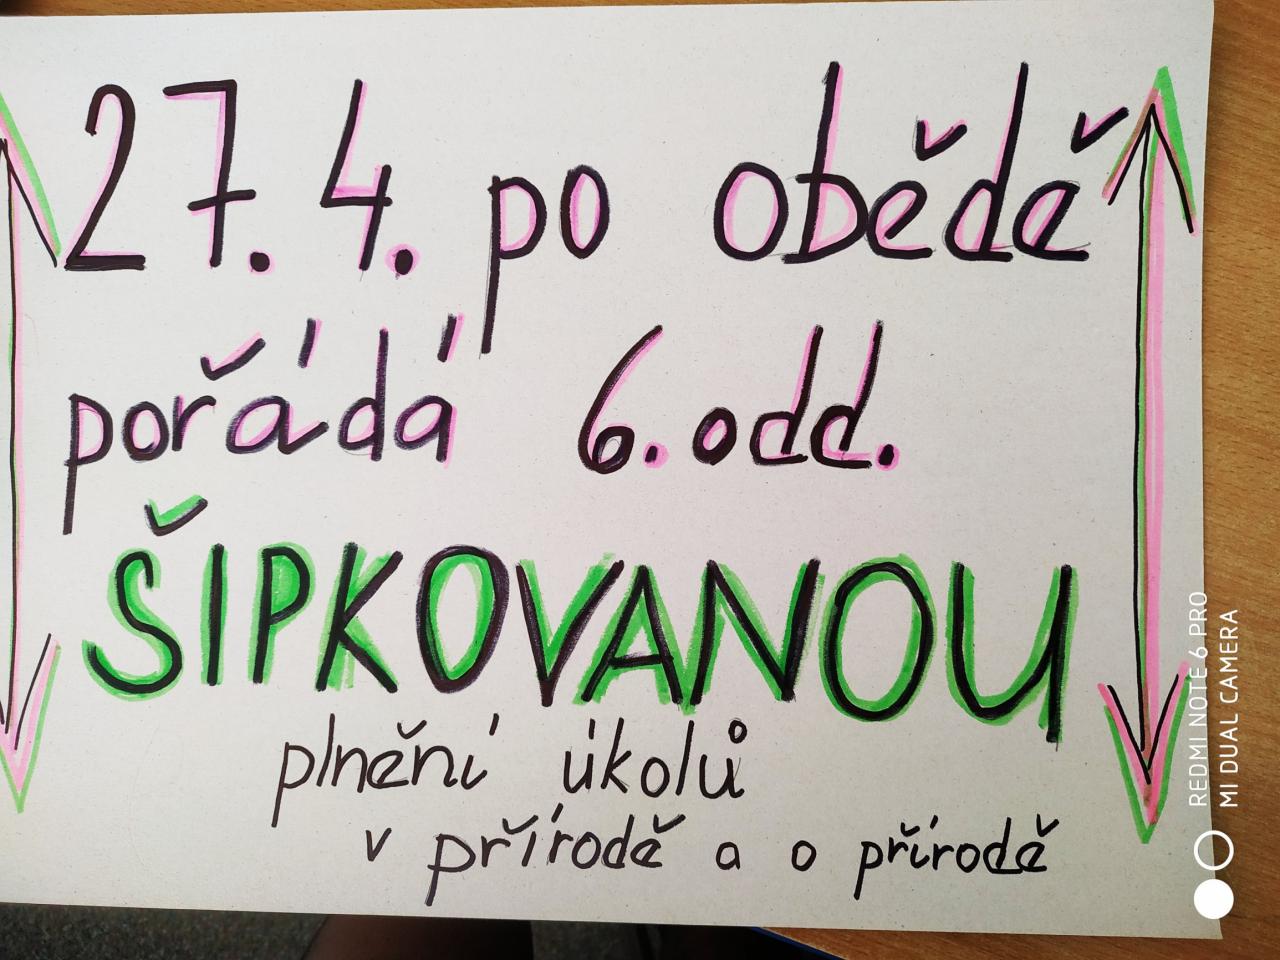 27. 4. po obědě
pořádá 6. odd.
ŠIPKOVANOU
plnění úkolů
v přírodě a o přírodě
REDMI NOTE 6 PRO
MI DUAL CAMERA